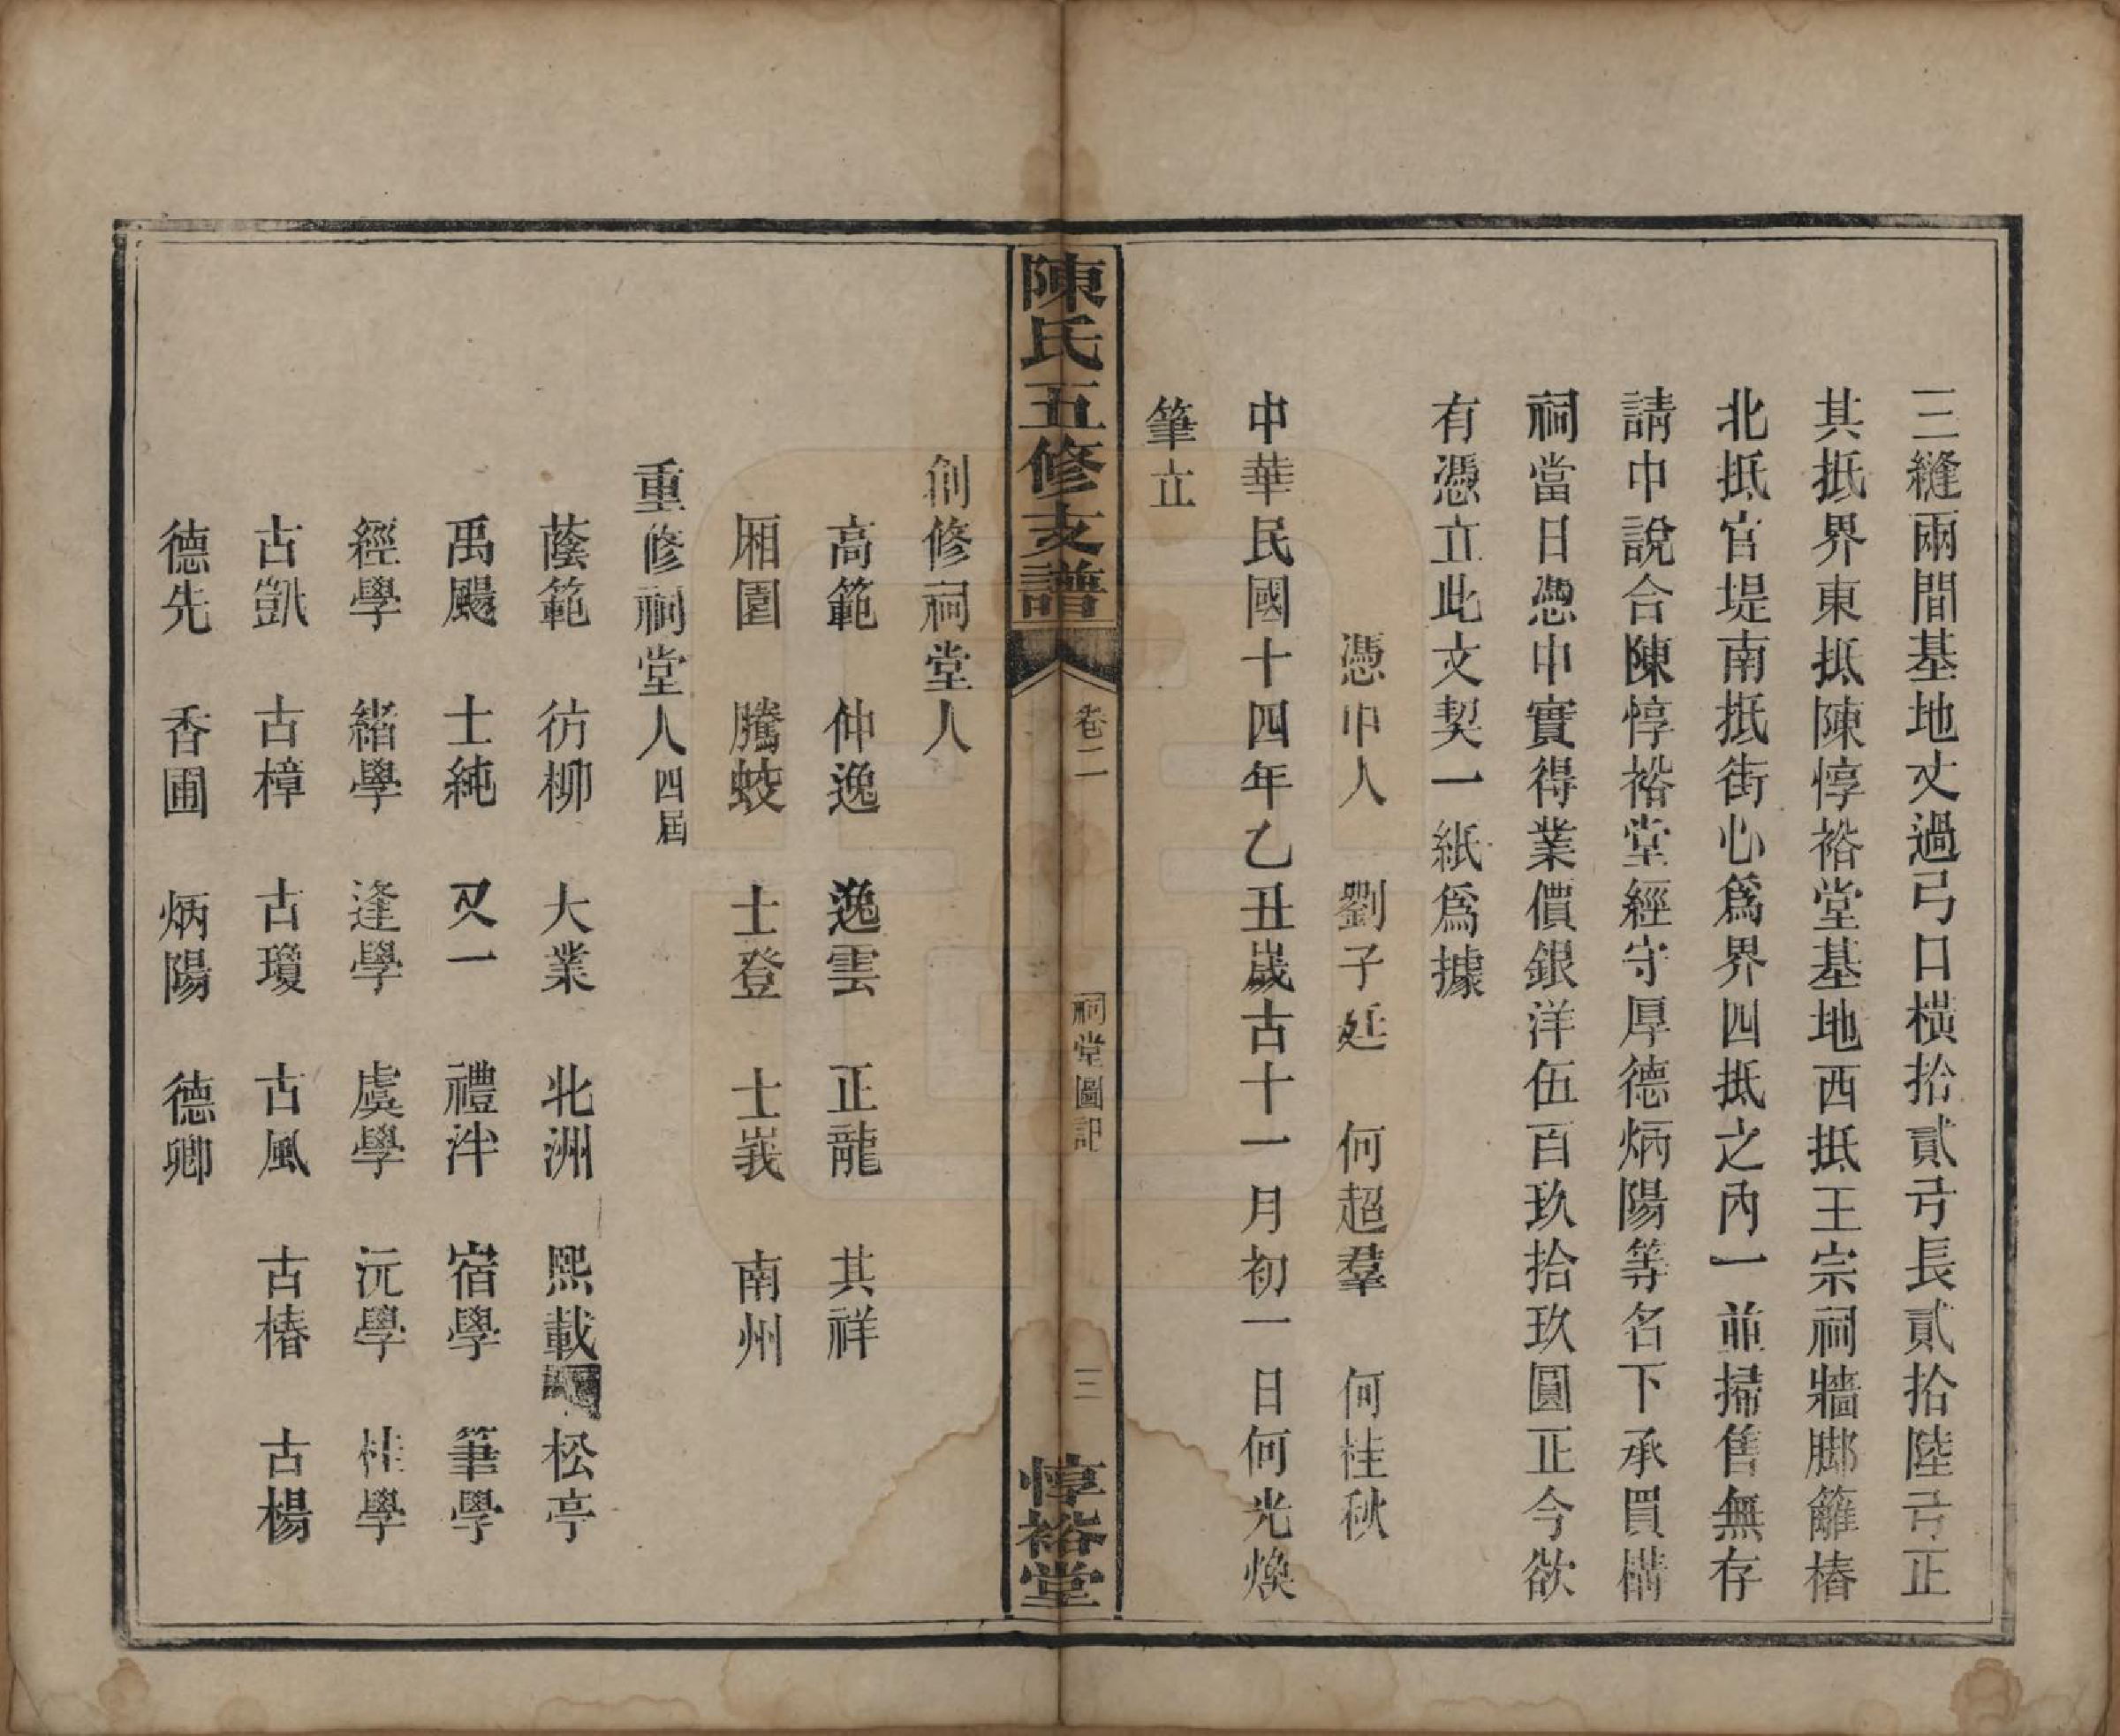 三縫兩間基地丈過弓口橫拾貳弓長貳拾陸弓正
其抵界東抵陳惇裕堂基地西抵王宗祠牆腳籬樁
北抵官堤南抵街心爲界四抵之內一並掃售無存
請中說合陳惇裕堂經守厚德炳陽等名下承買構
祠當日憑中實得業價銀洋伍百玖拾玖圓正今欲
有憑立此文契一紙爲據
憑中人 劉子延 何超羣 何桂秋
中華民國十四年乙丑歲古十一月初一日何光煥
筆立
陳氏五修支譜 卷二 祠堂圖記 三 惇裕堂
創修祠堂人
高範 仲逸 逸雲 正龍 其祥
厢園 騰蛟 士登 士峩 南州
重修祠堂人四屆
蔭範 彷柳 大業 北洲 熙載 松亭
禹颺 士純 又一 禮泮 宿學 筆學
經學 緒學 逢學 虞學 沅學 桂學
古凱 古樟 古瓊 古風 古椿 古楊
德先 香圃 炳陽 德卿